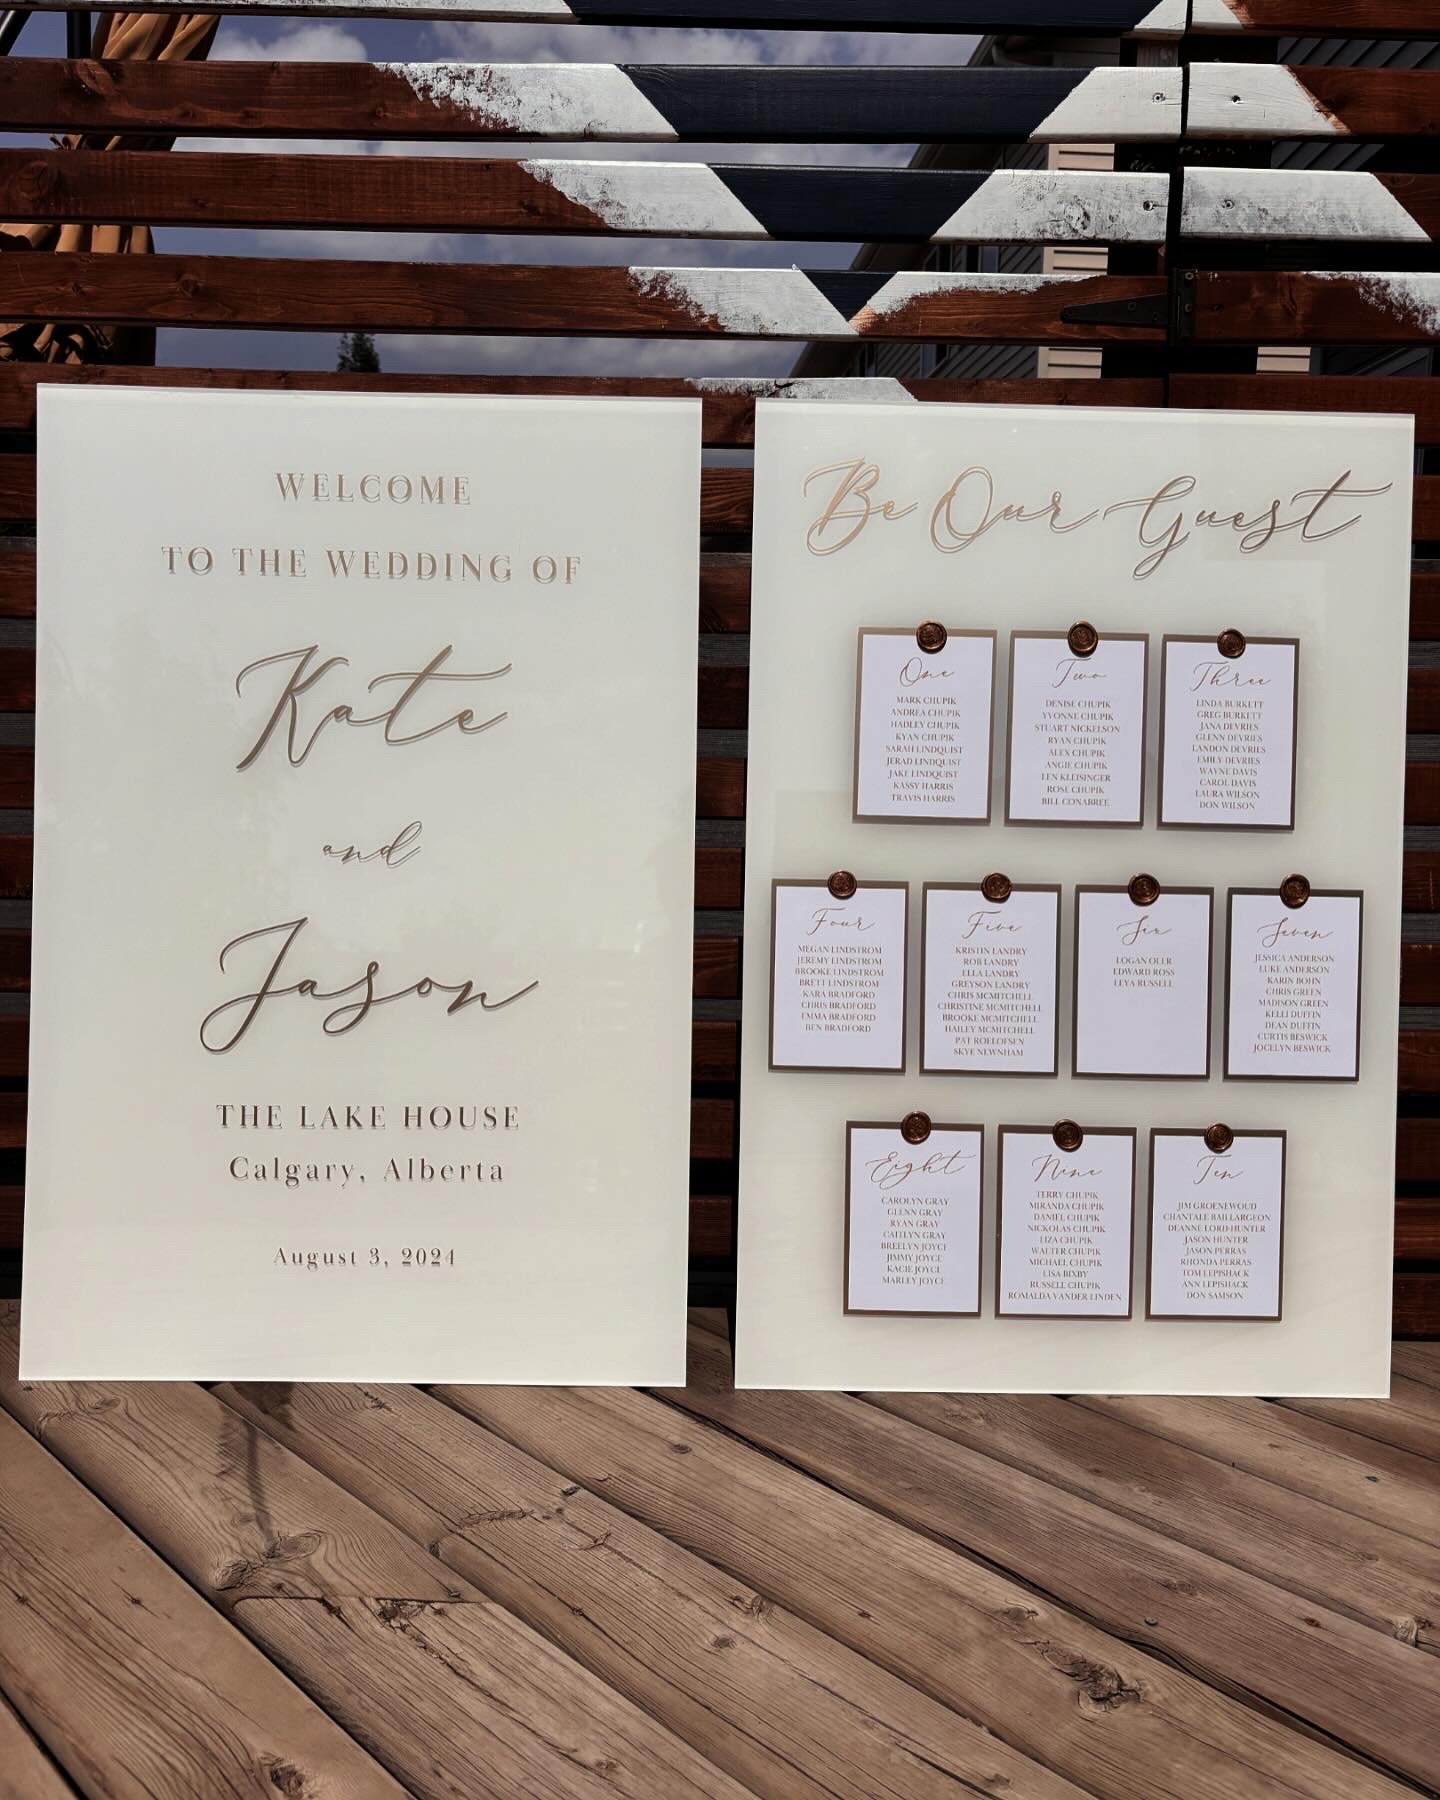 WELCOME
TO THE WEDDING OF
Kate
and
Jason
THE LAKE HOUSE
Calgary, Alberta
August 3, 2024
Be Our Guest
One
MARK CHUPIK
ANDREA CHUPIK
HADLEY CHUPIK
KYAN CHUPIK
SARAH LINDQUIST
JERAD LINDQUIST
JAKE LINDQUIST
KASSY HARRIS
TRAVIS HARRIS
Two
DENISE CHUPIK
YVONNE CHUPIK
STUART NICKELSON
RYAN CHUPIK
ALEX CHUPIK
ANGIE CHUPIK
LEN KLEISINGER
ROSE CHUPIK
BILL CONABREE
Three
LINDA BURKETT
GREG BURKETT
JANA DEVRIES
GLENN DEVRIES
LANDON DEVRIES
EMILY DEVRIES
WAYNE DAVIS
CAROL DAVIS
LAURA WILSON
DON WILSON
Four
MEGAN LINDSTROM
JEREMY LINDSTROM
BROOKE LINDSTROM
BRETT LINDSTROM
KARA BRADFORD
CHRIS BRADFORD
EMMA BRADFORD
BEN BRADFORD
Five
KRISTIN LANDRY
ROB LANDRY
ELLA LANDRY
GREYSON LANDRY
CHRIS MCMITCHELL
CHRISTINE MCMITCHELL
BROOKE MCMITCHELL
HAILEY MCMITCHELL
PAT ROELOFSEN
SKYE NEWNHAM
Six
LOGAN OLER
EDWARD ROSS
LEYA RUSSELL
Seven
JESSICA ANDERSON
LUKE ANDERSON
KARIN BOHN
CHRIS GREEN
MADISON GREEN
KELLI DUFFIN
DEAN DUFFIN
CURTIS BESWICK
JOCELYN BESWICK
Eight
CAROLYN GRAY
GLENN GRAY
RYAN GRAY
CAITLYN GRAY
BREELYN JOYCE
JIMMY JOYCE
KACIE JOYCE
MARLEY JOYCE
Nine
TERRY CHUPIK
MIRANDA CHUPIK
DANIEL CHUPIK
NICKOLAS CHUPIK
LIZA CHUPIK
WALTER CHUPIK
MICHAEL CHUPIK
LISA BIXBY
RUSSELL CHUPIK
ROMALDA VANDER LINDEN
Ten
JIM GROENEWOUD
CHANTALE BAILLARGEON
DEANNE LORD-HUNTER
JASON HUNTER
JASON PERRAS
RHONDA PERRAS
TOM LEPISHACK
ANN LEPISHACK
DON SAMSON